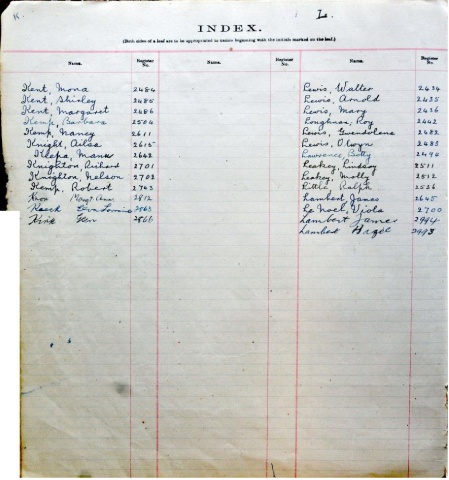 K.
L.
INDEX.
(Both sides of a leaf are to be appropriated to names beginning with the initials marked on the leaf.)
Name. Register No. Name. Register No. Name. Register No.
Kent, Mona 2484
Kent, Shirley 2485
Kent, Margaret 2486
Kemp, Barbara 2504
Kemp, Nancy 2611
Knight, Ailsa 2615
2642
Knighton Richard 2701
Knighton, Nelson 2702
Kemp, Robert 2743
Knox 2812
2863
King 2866
Lewis, Walter 2434
Lewis, Arnold 2435
Lewis, Mary 2436
Loughnan, Roy 2442
Lewis, Gwendolene 2482
Lewis, Olwyn 2483
Lawrence, Betty 2494
Leakey, Lindsay 2511
Leakey, Molly 2512
Little, Ralph 2526
Lambert, James 2645
Le Noel, Viola 2700
Lambert James 2994
Lambert Hazel 2998